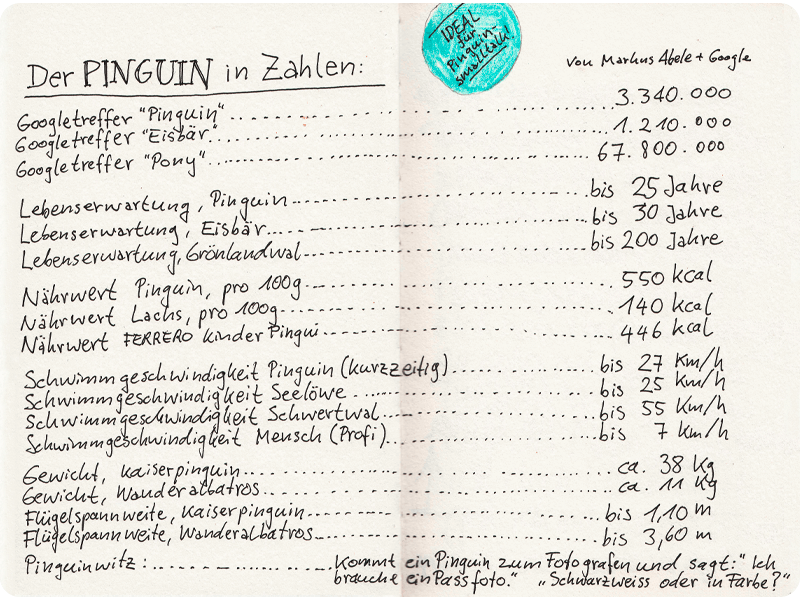 IDEAL
für
Pinguin-
smalltalk!
Der PINGUIN in Zahlen:
von Markus Abele + Google
Googletreffer "Pinguin" 3.340.000
Googletreffer "Eisbär" 1.210.000
Googletreffer "Pony" 67.800.000
Lebenserwartung, Pinguin bis 25 Jahre
Lebenserwartung, Eisbär bis 30 Jahre
Lebenserwartung, Grönlandwal bis 200 Jahre
Nährwert Pinguin, pro 100g 550 kcal
Nährwert Lachs, pro 100g 140 kcal
Nährwert FERRERO kinder Pingui 446 kcal
Schwimmgeschwindigkeit Pinguin (kurzzeitig) bis 27 Km/h
Schwimmgeschwindigkeit Seelöwe bis 25 Km/h
Schwimmgeschwindigkeit Schwertwal bis 55 Km/h
Schwimmgeschwindigkeit Mensch (Profi) bis 7 Km/h
Gewicht, Kaiserpinguin ca. 38 Kg
Gewicht, Wanderalbatros ca. 11 Kg
Flügelspannweite, Kaiserpinguin bis 1,10 m
Flügelspannweite, Wanderalbatros bis 3,60 m
Pinguinwitz: Kommt ein Pinguin zum Fotografen und sagt: "Ich
brauche ein Passfoto." „Schwarzweiss oder in Farbe?"